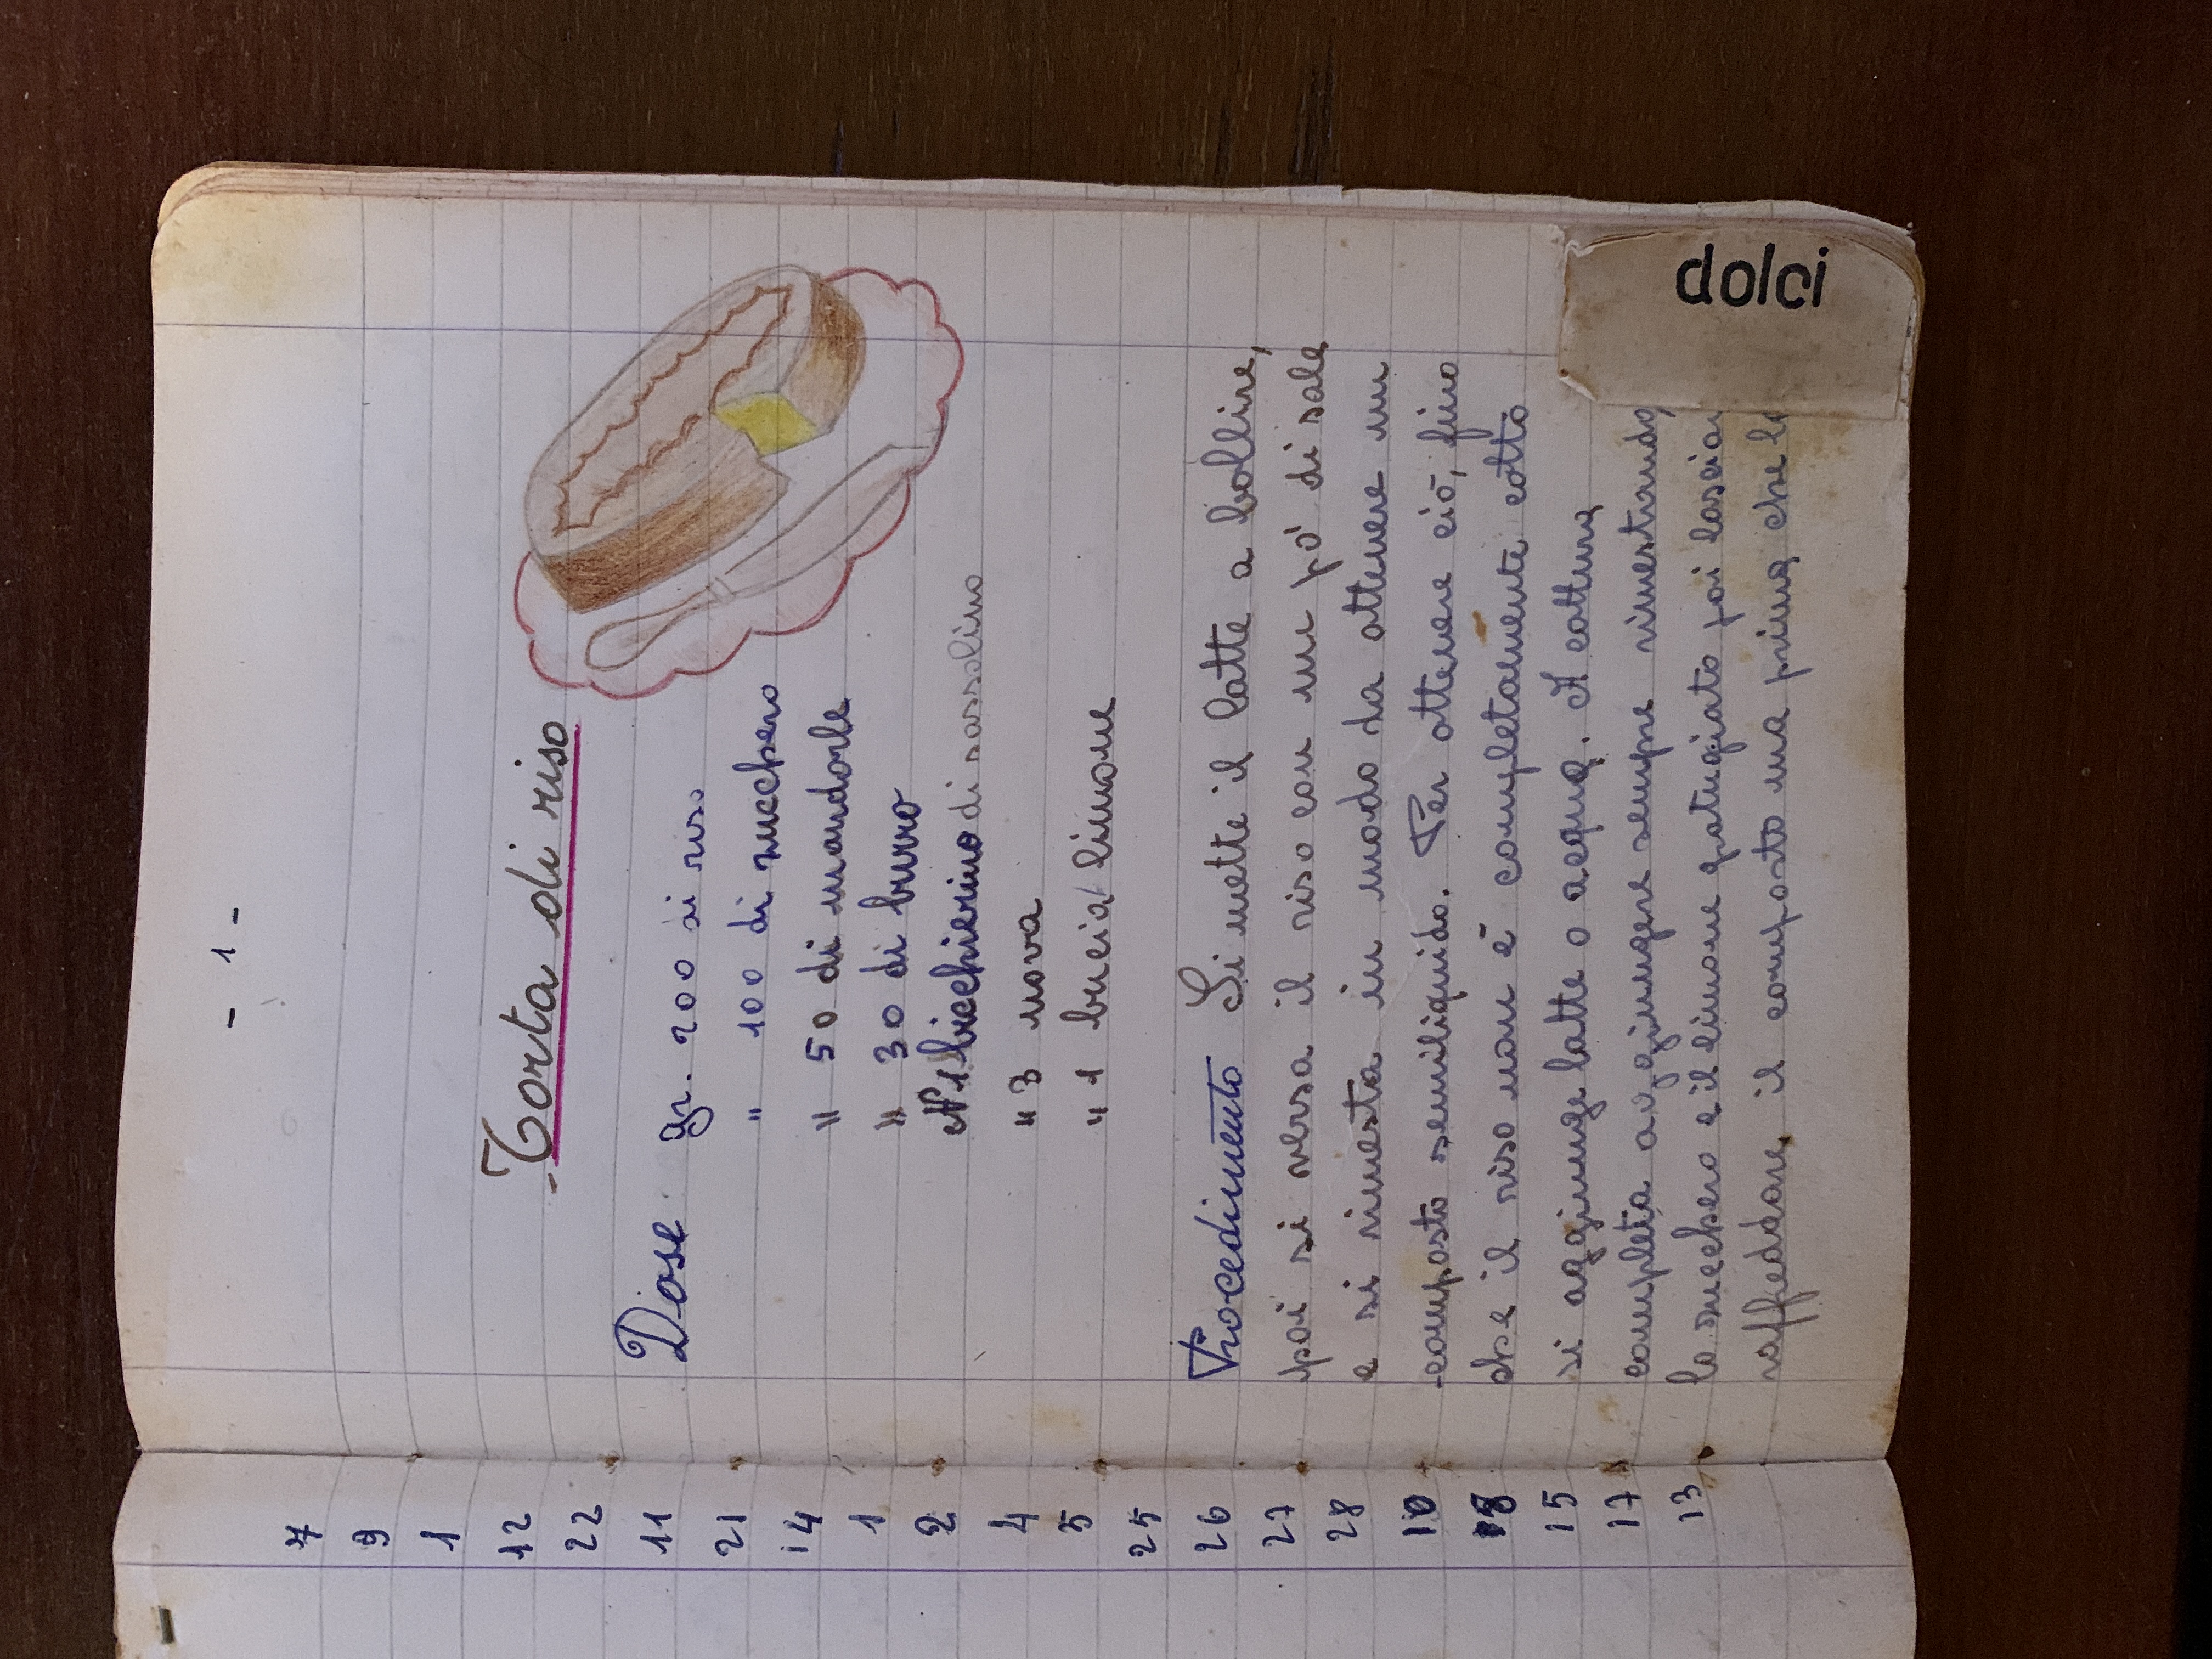 7
9
1
12
22
11
21
14
1
2
4
5
25
26
27
28
10
18
15
17
13
- 1 -
Torta di riso
Dose gr. 200 di riso
" 100 di zucchero
" 50 di mandorle
" 30 di burro
N 1 bicchierino di sassolino
" 3 uova
" 1 bucia limone
Procedimento Si mette il latte a bollire,
poi si versa il riso con un pò di sale
e si rimesta in modo da ottenere un
composto semiliquido. Per ottenere ciò, fino
che il riso non è completamente cotto
si aggiunge latte o acqua. A cottura
completa aggiungere sempre rimestando
lo zucchero e il limone gratugiato poi lasciar
raffreddare il composto ma prima che
dolci